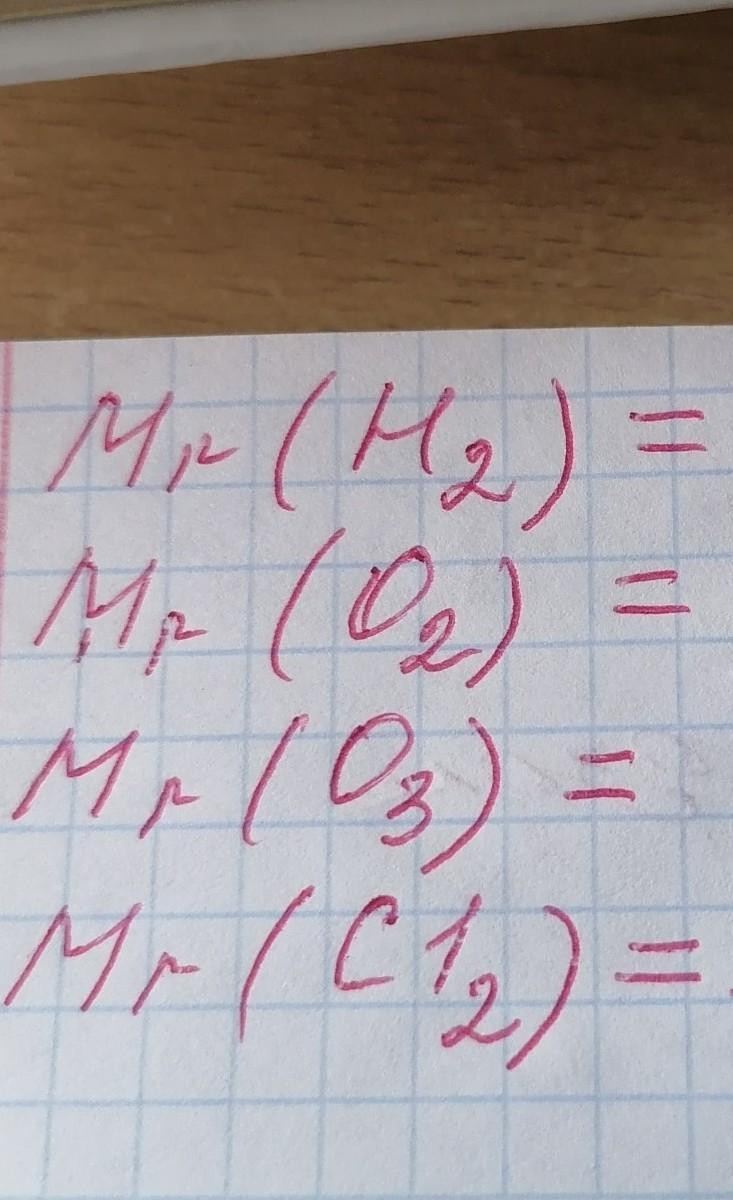 Mr (H₂) =
Mr (O₂) =
Mr (O₃) =
Mr (Cl₂) =